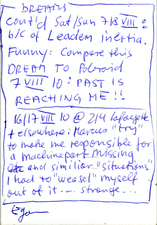 DREAMS
cont'd Sat/Sun 7/8 VIII:
b/c of Leaden inertia.
Funny: Compare this
DREAM TO Polaroid
7 VIII 10: PAST IS
REACHING ME!!
16/17 VIII 10 @ 214 Lafayette
+ elsewhere: Marcus "try"
to make me responsible for
a machinepart missing
etc and similiar "situations"
I had to "weasel" myself
out of it ... strange...